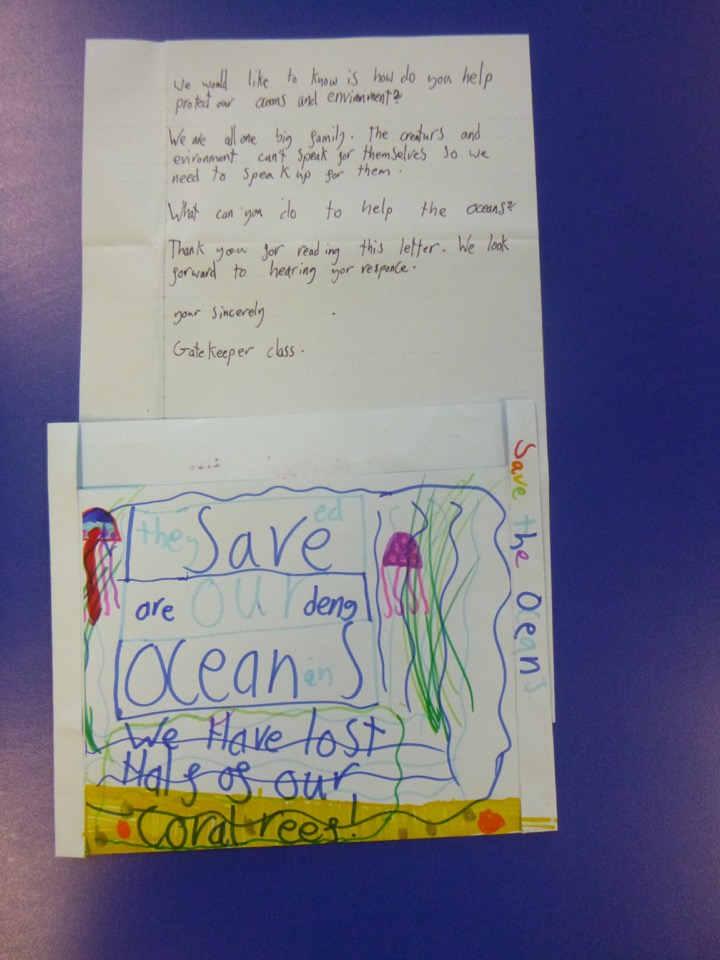 we would like to know is how do you help
protect our oceans and enviroment?
We are all one big family. The creaturs and
evironment can't speak for themselves so we
need to speak up for them.
What can you do to help the oceans?
Thank you for reading this letter. We look
forward to hearing yor responce.
your sincerely
Gatekeeper class.
Save the Ocean's
they Save ed
are our deng
OceanS en
We Have lost
Half of our
Coral rees!